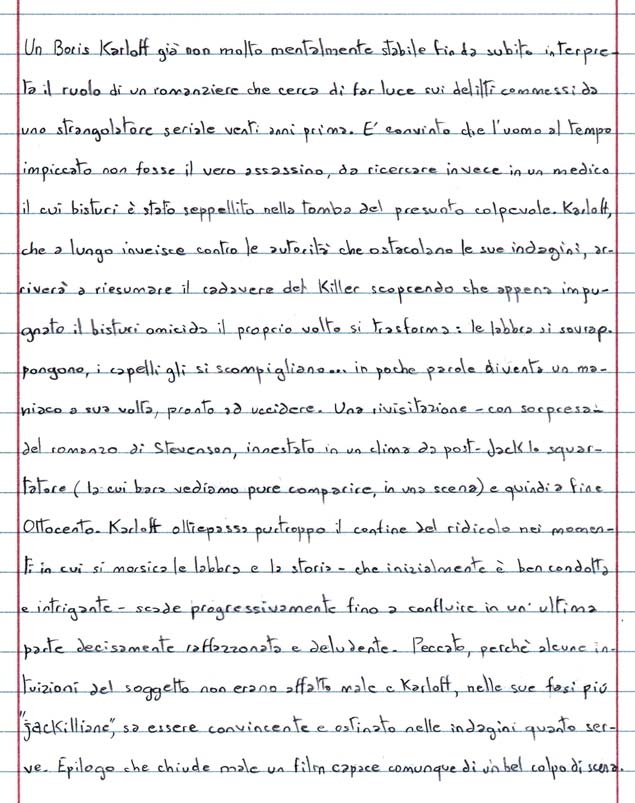 Un Boris Karloff già non molto mentalmente stabile fin da subito interpre-
ta il ruolo di un romanziere che cerca di far luce sui delitti commessi da
uno strangolatore seriale venti anni prima. E' convinto che l'uomo al tempo
impiccato non fosse il vero assassino, da ricercare invece in un medico
il cui bisturi è stato seppellito nella tomba del presunto colpevole. Karloff,
che a lungo inveisce contro le autorità che ostacolano le sue indagini, ar-
riverà a riesumare il cadavere del Killer scoprendo che appena impu-
gnato il bisturi omicida il proprio volto si trasforma: le labbra si sovrap-
pongono, i capelli gli si scompigliano... in poche parole diventa un ma-
niaco a sua volta, pronto ad uccidere. Una rivisitazione - con sorpresa -
del romanzo di Stevenson, innestato in un clima da post-Jack lo squar-
tatore (la cui bara vediamo pure comparire, in una scena) e quindi a fine
Ottocento. Karloff oltrepassa purtroppo il confine del ridicolo nei momen-
ti in cui si morsica le labbra e la storia - che inizialmente è ben condotta
e intrigante - scade progressivamente fino a confluire in un' ultima
parte decisamente raffazzonata e deludente. Peccato, perchè alcune in-
tuizioni del soggetto non erano affatto male e Karloff, nelle sue fasi più
"jackilliane", sa essere convincente e ostinato nelle indagini quanto ser-
ve. Epilogo che chiude male un film capace comunque di un bel colpo di scena.